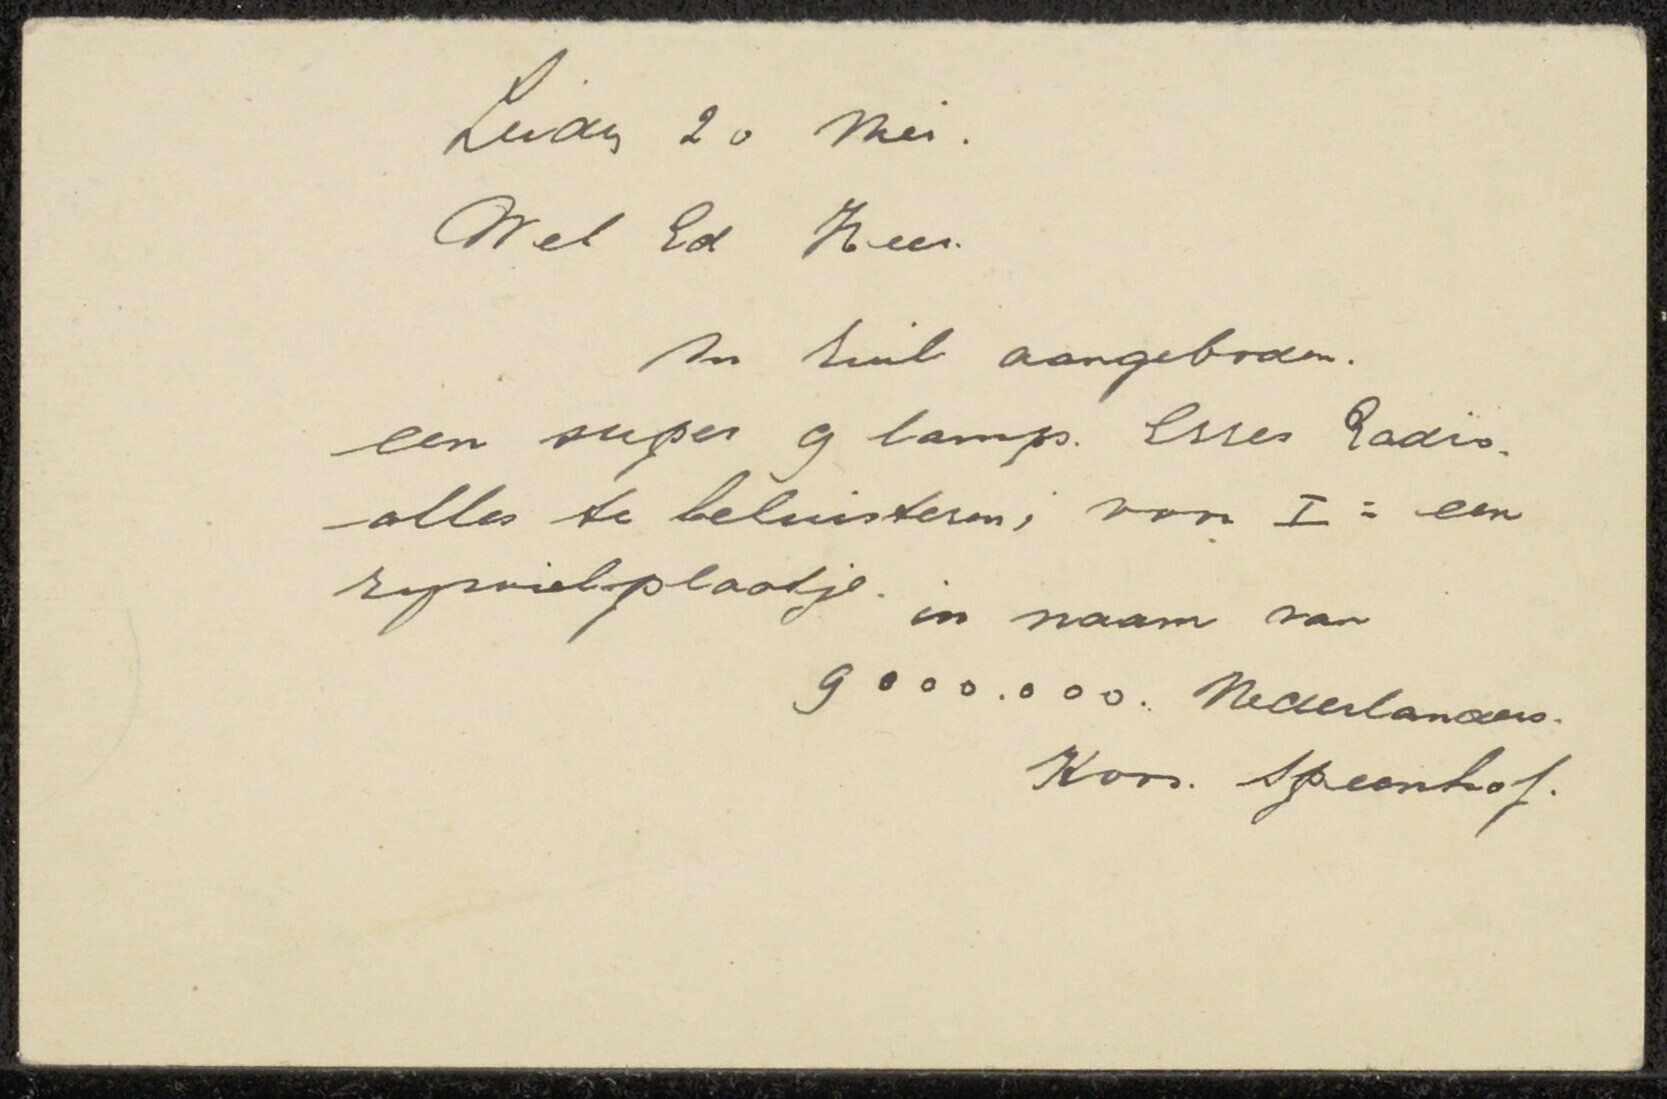 Leiden 20 Mei.
Wel Ed Heer.
In ruil aangeboden.
een super 9 lamp. Esses Radio.
alles te beluisteren; voor I = een
rijwielplaatje. in naam van
9000.000. Nederlanders.
Koos. Speenhof.